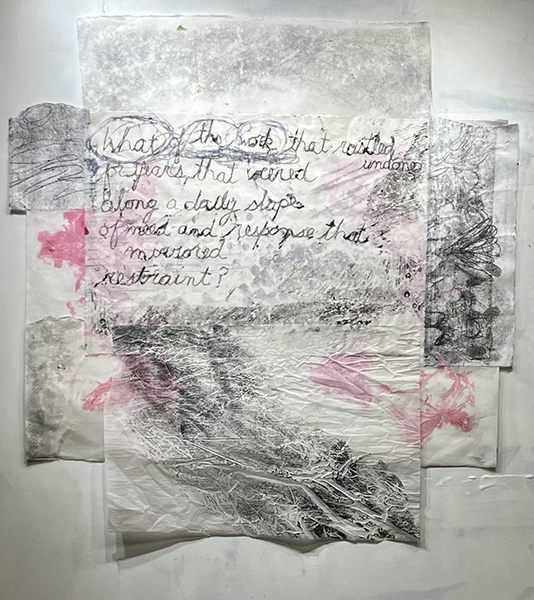 What of the work that
undone
for years, that veered
along a daily slope
of need and response that
mirrored
restraint?